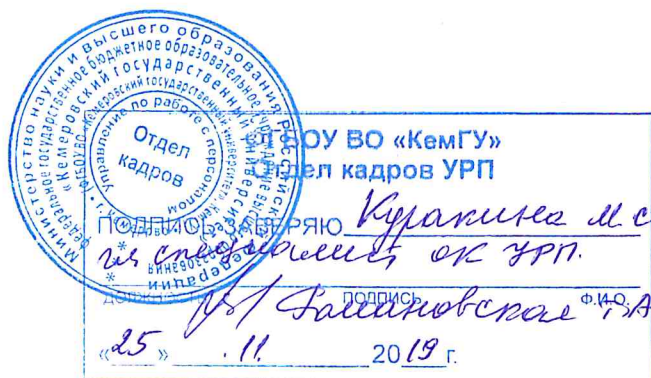 Министерство науки и высшего образования Российской Федерации
федеральное государственное бюджетное образовательное учреждение
«Кемеровский государственный университет»
Управление по работе с персоналом
Отдел
кадров
ФГБОУ ВО «КемГУ»
Отдел кадров УРП
ПОДПИСЬ ЗАВЕРЯЮ Куракина М.С
гл специалист ОК УРП.
должность подпись Ф.И.О.
«25» .11. 2019 г.